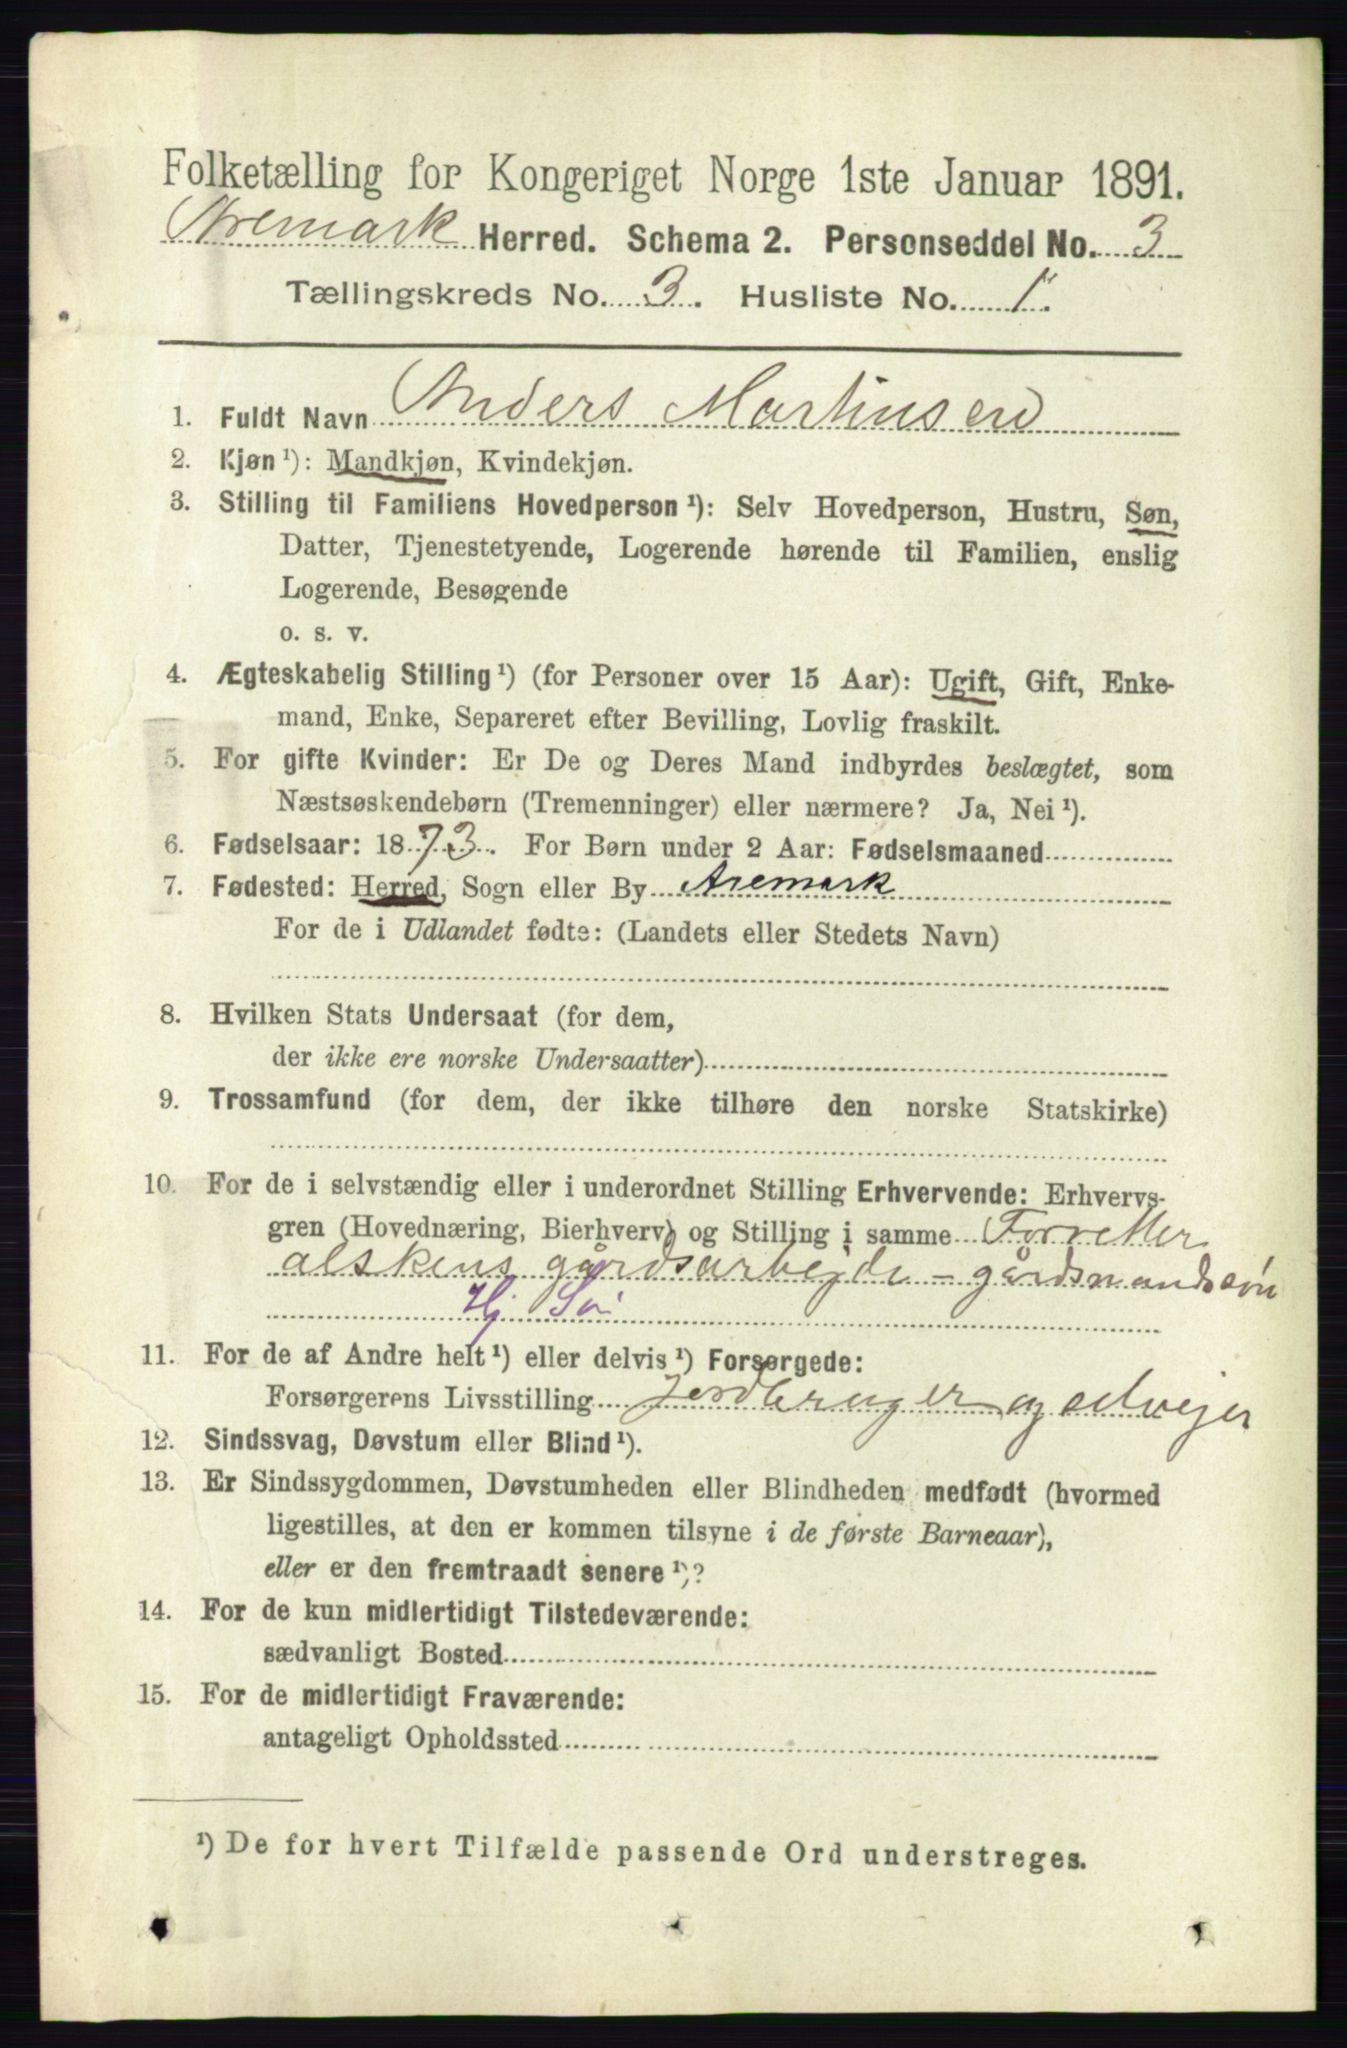 Folketælling for Kongeriget Norge 1ste Januar 1891.
Aremark Herred. Schema 2. Personseddel No. 3
Tællingskreds No. 3. Husliste No. 1.
1. Fuldt Navn Anders Martinsen
2. Kjøn ¹): Mandkjøn, Kvindekjøn.
3. Stilling til Familiens Hovedperson ¹): Selv Hovedperson, Hustru, Søn,
Datter, Tjenestetyende, Logerende hørende til Familien, enslig
Logerende, Besøgende
o. s. v.
4. Ægteskabelig Stilling ¹) (for Personer over 15 Aar): Ugift, Gift, Enke-
mand, Enke, Separeret efter Bevilling, Lovlig fraskilt.
5. For gifte Kvinder: Er De og Deres Mand indbyrdes beslægtet, som
Næstsøskendebørn (Tremenninger) eller nærmere? Ja, Nei ¹).
6. Fødselsaar: 1873. For Børn under 2 Aar: Fødselsmaaned
7. Fødested: Herred, Sogn eller By Aremark
For de i Udlandet fødte: (Landets eller Stedets Navn)
8. Hvilken Stats Undersaat (for dem,
der ikke ere norske Undersaatter)
9. Trossamfund (for dem, der ikke tilhøre den norske Statskirke)
10. For de i selvstændig eller i underordnet Stilling Erhvervende: Erhvervs-
gren (Hovednæring, Bierhverv) og Stilling i samme Forretter
alskens gårdsarbejde - gårdsmandssøn
Hj Sø
11. For de af Andre helt ¹) eller delvis ¹) Forsørgede:
Forsørgerens Livsstilling Jordbruger og selvejer
12. Sindssvag, Døvstum eller Blind ¹).
13. Er Sindssygdommen, Døvstumheden eller Blindheden medfødt (hvormed
ligestilles, at den er kommen tilsyne i de første Barneaar),
eller er den fremtraadt senere ¹)?
14. For de kun midlertidigt Tilstedeværende:
sædvanligt Bosted
15. For de midlertidigt Fraværende:
antageligt Opholdssted
¹) De for hvert Tilfælde passende Ord understreges.